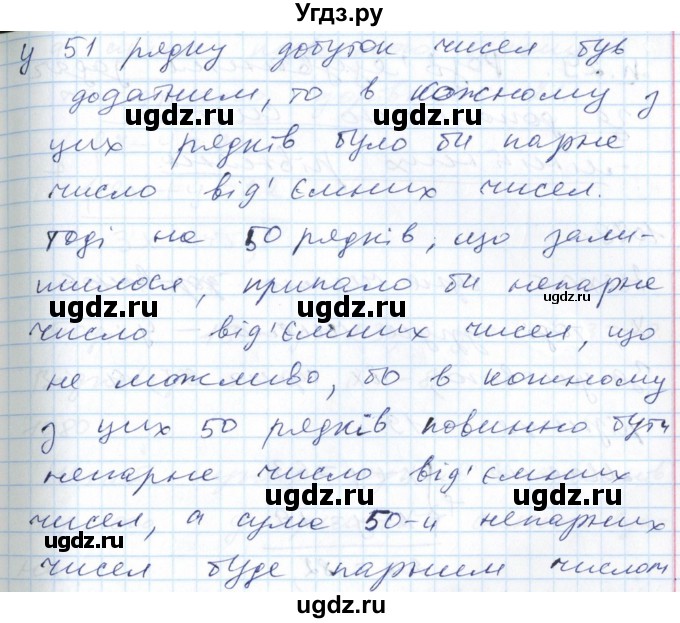 Угдз.ру
у 51 рядку добуток чисел був
додатнім, то в кожному з
ugdz.ru ugdz.ru
цих рядків було би парне
число від'ємних чисел.
Тоді на 50 рядків, що зали-
шилося, припало би непарне
ugdz.ru ugdz.ru ugdz.ru
число від'ємних чисел, що
не можливо, бо в кожному
з цих 50 рядків повинно бути
непарне число від'ємних
ugdz.ru
чисел, а сума 50-и непарних
ugdz.ru ugdz.ru
чисел буде парним числом
ugdz.ru